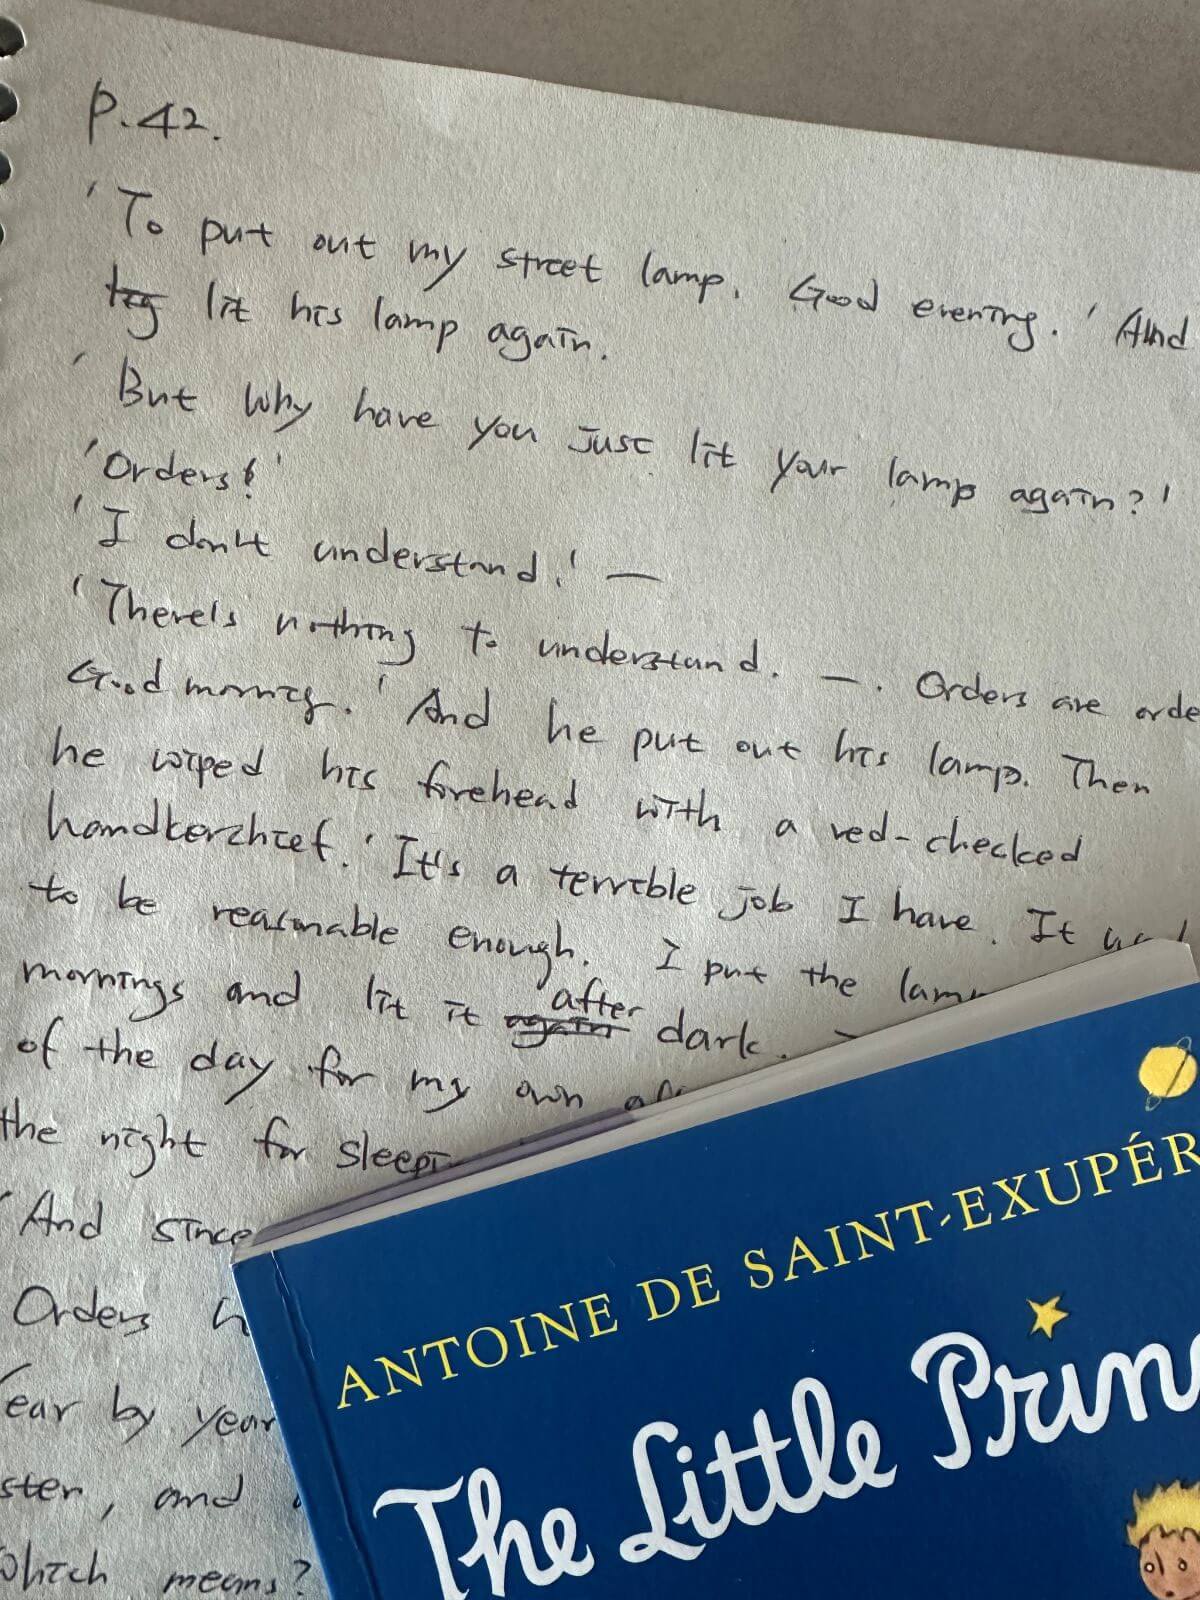 P.42.
'To put out my street lamp. Good evening.' And
lit his lamp again.
'But why have you just lit your lamp again?'
'Orders!'
'I don't understand.' —
'There's nothing to understand. —. Orders are orde
Good morning.' And he put out his lamp. Then
he wiped his forehead with a red-checked
handkerchief. 'It's a terrible job I have. It
to be reasonable enough. I put the lam
mornings and lit it again after dark. —
of the day for my own
the night for sleepi
'And since
Orders
Year by year
ster, and
Which means?
ANTOINE DE SAINT-EXUPÉR
The Little Prin